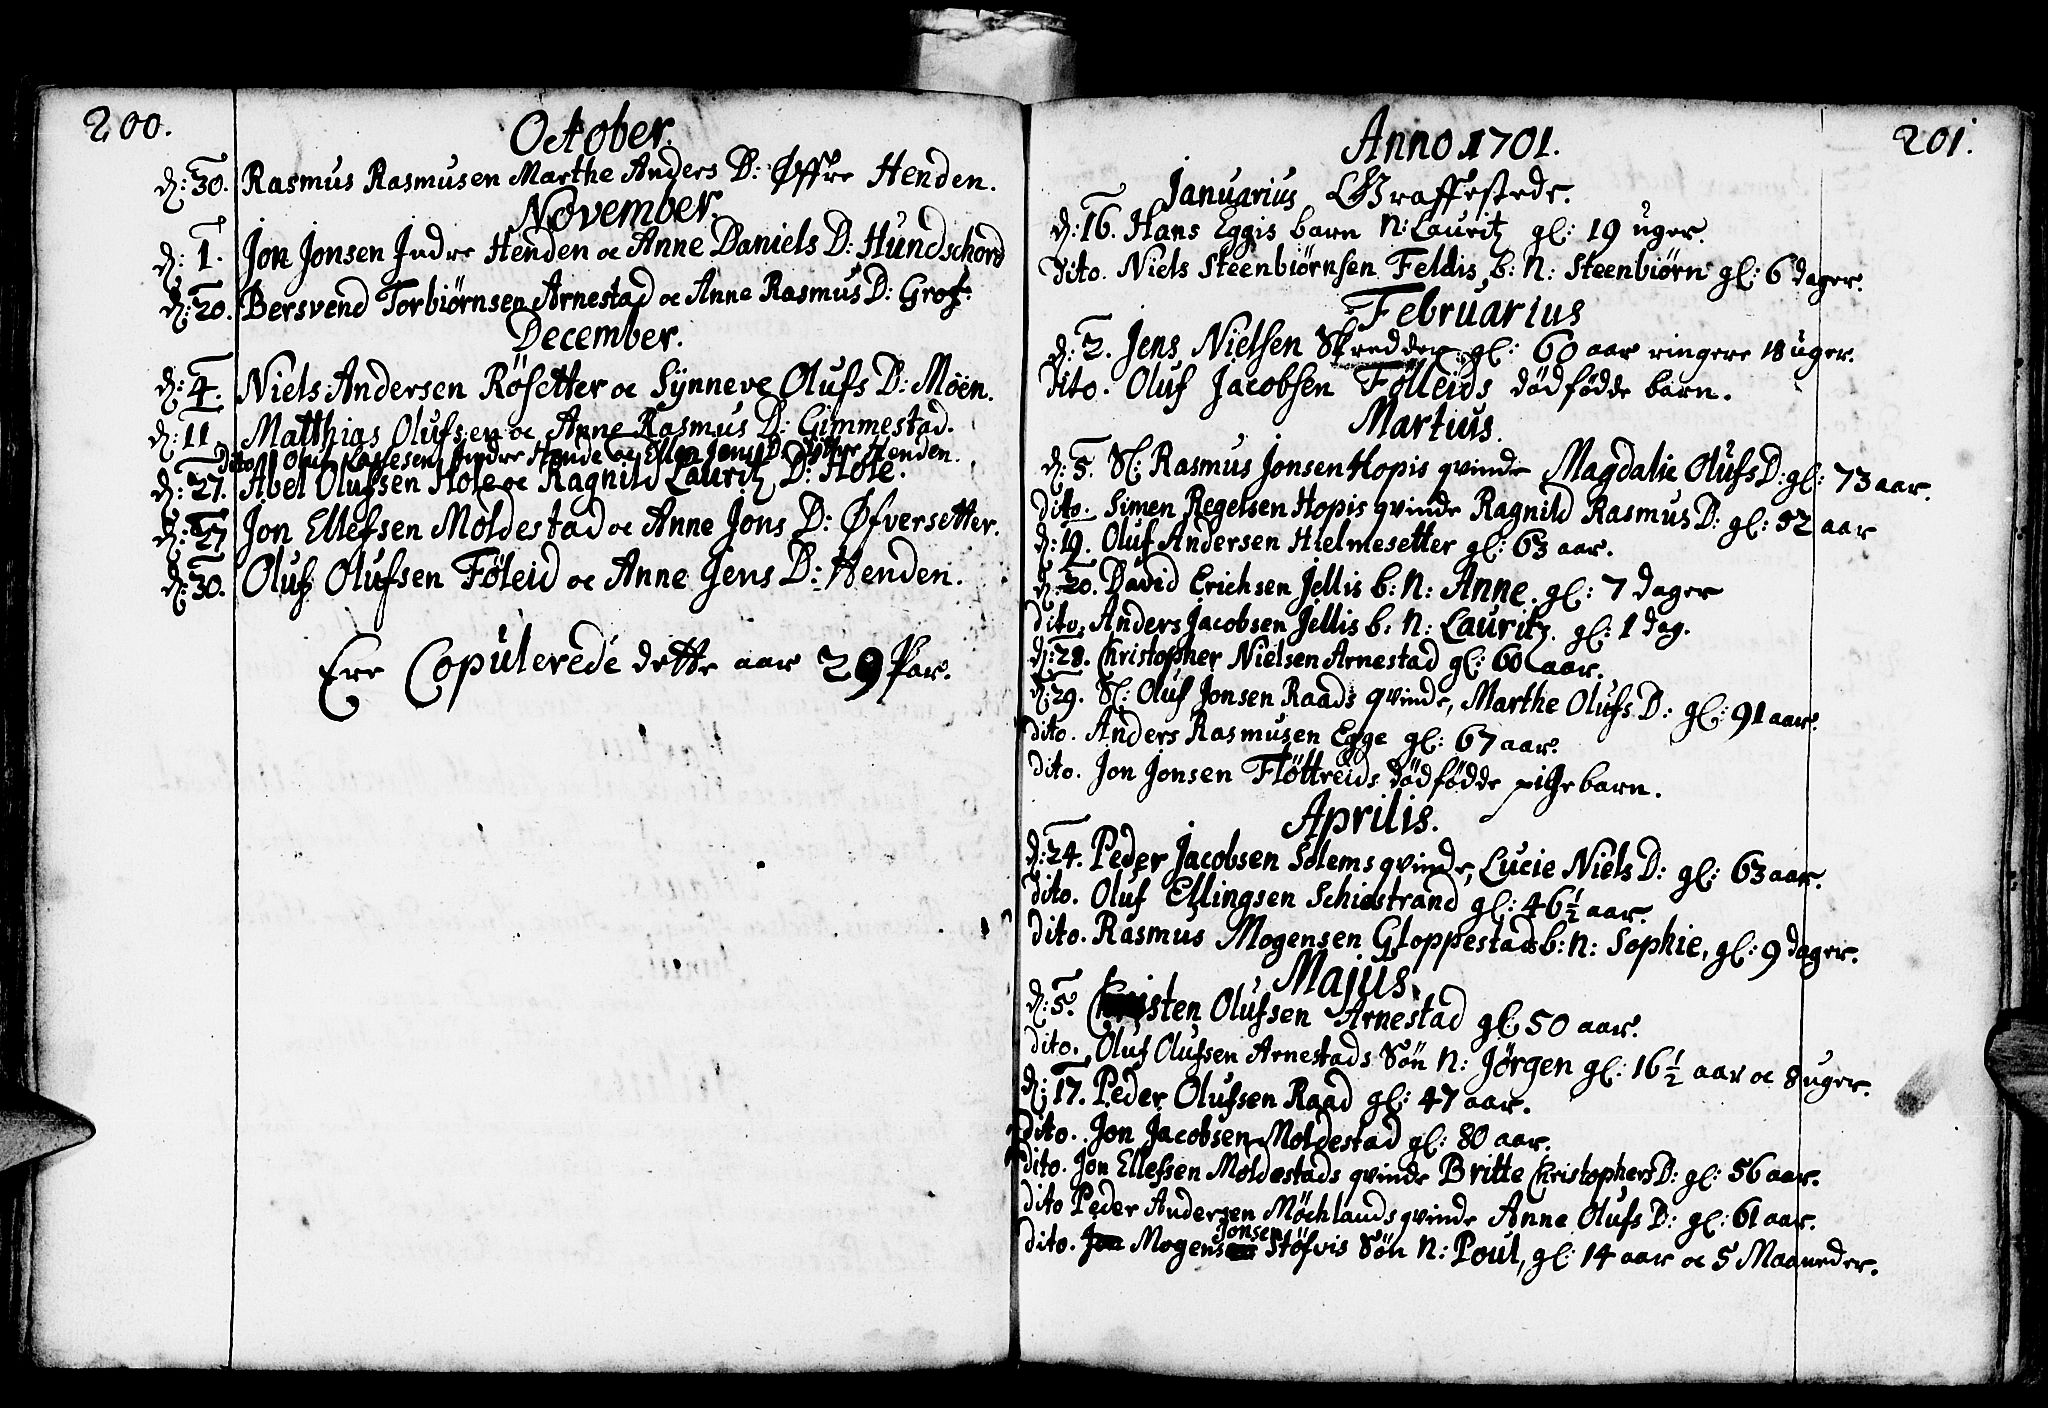 200.
October.
d: 30. Rasmus Rasmusen Marthe Anders D: Øffre Henden.
November.
d: 1. Jon Jonsen Indre Henden oc Anne Daniels D: Hundschord
d: 20. Bersvend Torbiørnsen Arnestad oc Anne Rasmus D: Grof.
December.
d: 4. Niels Andersen Røsetter oc Sÿnneve Olufs D: Möen.
d: 11. Matthias Olufsen oc Anne Rasmus D: Gimmestad.
dito Oluf Indre Hende oc Ellen Jens D: Henden.
d: 27. Abel Olufsen Hole oc Ragnild Lauritz D: Hole.
d: 27 Jon Ellefsen Moldestad oc Anne Jons D: Øfversetter.
d: 30. Oluf Olufsen Föleid oc Anne Jens D: Henden.
Ere Copulerede dette aar 29 Par.
201.
Anno 1701.
Januarius Graffestede.
d: 16. Hans Eggis barn N: Lauritz gl: 19 uger.
dito. Niels Steenbiørnsen Feldis b: N: Steenbiørn gl: 6 dager.
Februarius
d: 2. Jens Nielsen Skredder gl: 60 aar ringere 18 uger.
dito. Oluf Jacobsen Fölleids dödfödde barn.
Martius.
d: 5. Sl: Rasmus Jonsen Hopis qvinde Magdalie Olufs D: gl: 73 aar.
dito. Simen Regelsen Hopis qvinde Ragnild Rasmus D: gl: 52 aar
d: 19. Oluf Andersen Hielmesetter gl: 63 aar.
d: 20. David Erichsen Jellis b: N: Anne. gl: 7 dager
dito. Anders Jacobsen Jellis b: N: Lauritz. gl: 1 dag.
d: 28. Christopher Nielsen Arnestad gl: 60 aar.
d: 29. Sl: Oluf Jonsen Raads qvinde, Marthe Olufs D: gl: 91 aar.
dito. Anders Rasmusen Egge gl: 67 aar.
dito. Jon Jonsen Fløttreids dödfödde pige barn.
Aprilis.
d: 24. Peder Jacobsen Solems qvinde, Lucie Niels D: gl: 63 aar.
dito. Oluf Ellingsen Schiestrand gl: 46½ aar.
dito. Rasmus Mogensen Gloppestads b: n: Sophie, gl: 9 dager.
Majus.
d: 5. Christen Olufsen Arnestad gl: 50 aar.
dito. Oluf Olufsen Arnestads Sön N: Jörgen gl: 16½ aar oc 8 uger.
d: 17. Peder Olufsen Raad gl: 47 aar.
dito. Jon Jacobsen Moldestad gl: 80 aar.
dito. Jon Ellefsen Moldestads qvinde Britte Christophers D: gl: 56 aar.
dito Peder Andersen Möchlands qvinde Anne Olufs D: gl: 61 aar.
dito. Jon Mogens Jonsen Støfvis Sön N: Poul, gl: 14 aar oc 5 Maaneder.